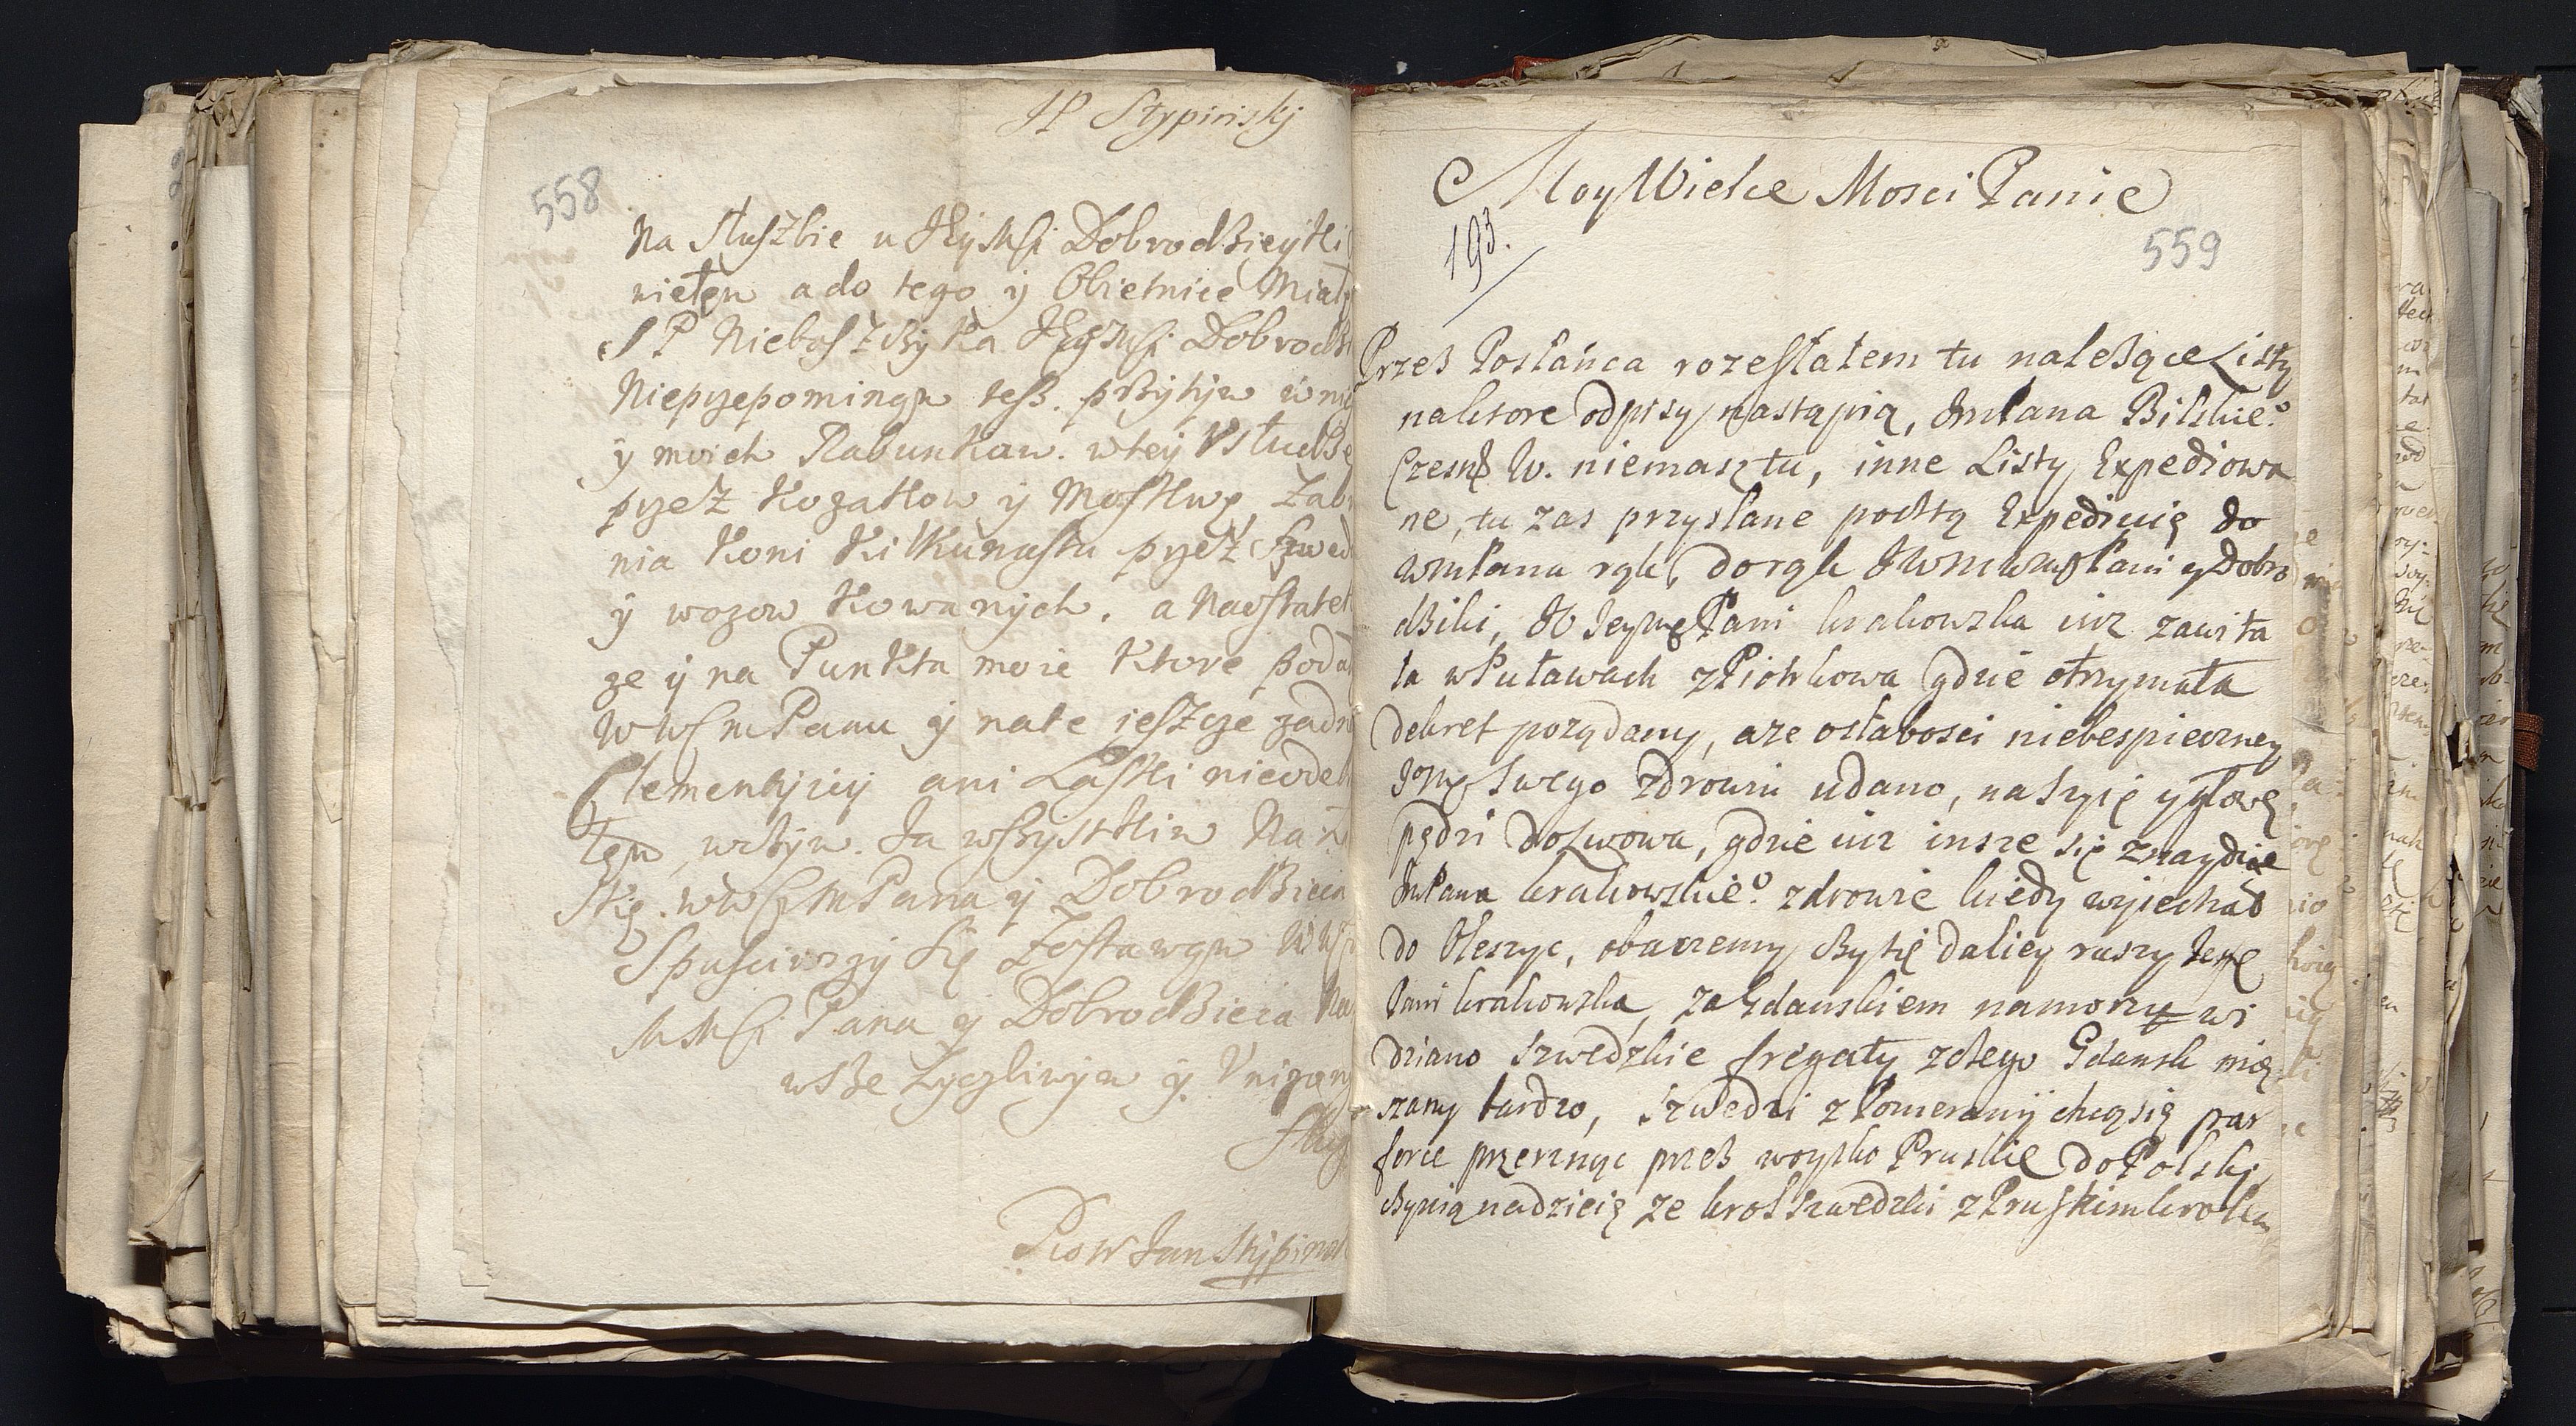 JP Stypiński
558
Na Słuszbie u JEyMsci Dobrodzieyki
wielem a do tego y Obietnice Miał
S P Nieboszczyka JEgMsci Dobrodz
Nieprzepominąm tesz. przytym
y moich Rabunkaw. wtey Vsłudze
przez Kozakow y Moskwę, Zab
nia Koni Kilkunastu przez Szwed
y wozow Kowanych. a Naostatek
ze y na Punkta moie Ktore poda
WWmPanu y nate ieszcze zadn
Clementyiey ani Laski nieodeb
łęm, wczym. Ia wszystkim Na
Skę. WWMPana y Dobrodzieia
Spusciwszy Się Zostawąm
MMsci Pana y Dobrodzieia Na
wsze Zyczliwym y Vnizon
Sług
Piotr Jan Stypinsk
Moy Wielce Mosci Panie
193.
559
Przez Posłańca rozesłałem tu należące Listy
naktore odpisy nastąpią, JmPana Bilskie°
Czesnk W. niemasz tu, inne Listy Expediowa
ne, tu zas przysłane pocztą Expediuię do
WmPana rąk, do rąk Pani y Dobro
dziki, Pani krakowska iuz zawita
ła wPuławach zPiotrkowa gdzie otrzymała
dekret poządany, aze osłabosci niebespieczney
Jgm swego zdrowiu udano, naszyię ygłowę
pędzi doLwowa, gdzie iuz insze się znayduie
JmPana krakowskie° zdrowie kiedy wyiechał
do Oleszyc, obaczemy czy się daliey ruszy
Pani krakowska, za Gdanskiem namorzu wi
dziano szwedzkie fregaty zczego Gdansk mię
szany bardzo, szwedzi z Pomeranij chcą się par
force przerznąc przez woysko Pruskie do Polski,
czynią nadzieię ze krol szwedzki z Pruskim krolem